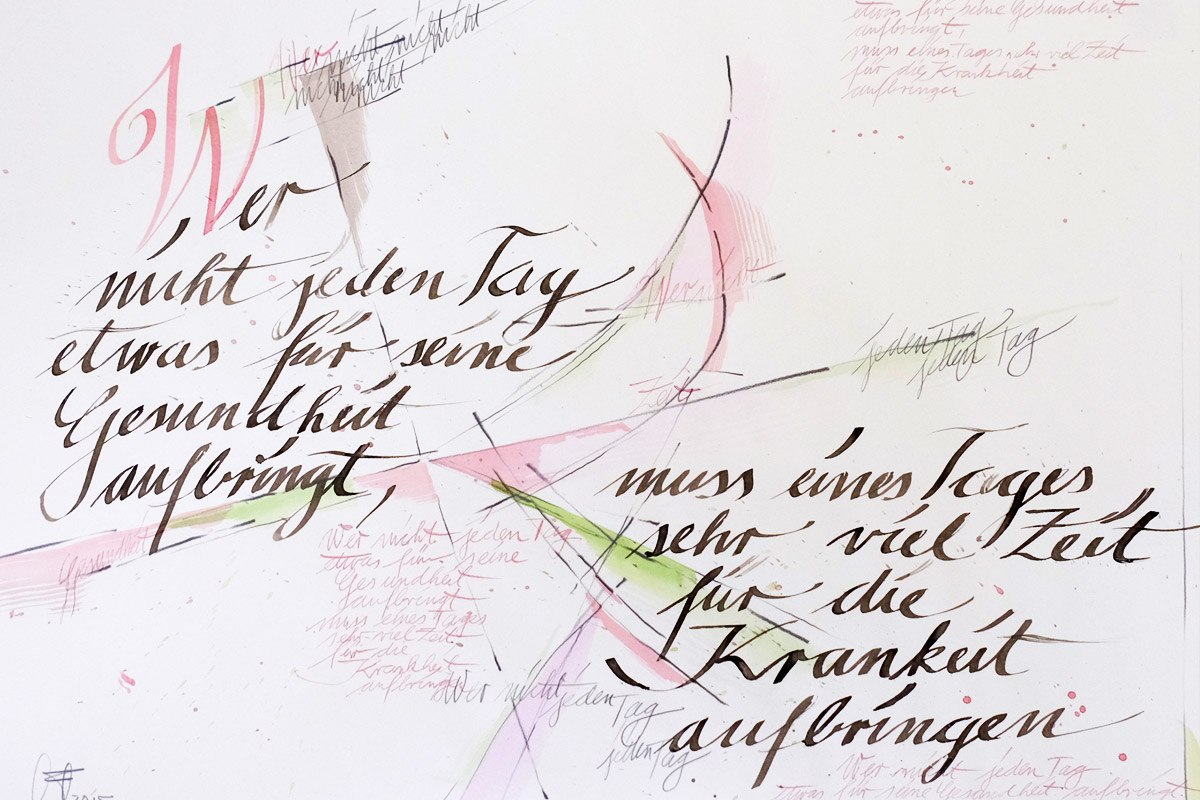 Wer nicht nicht nicht
nicht nicht nicht
etwas für seine Gesundheit
aufbringt,
muss eines Tages sehr viel Zeit
für die Krankheit
aufbringen
Wer
nicht jeden Tag
etwas für seine
Gesundheit
aufbringt,
Wer nicht
Zeit
jeden Tag
jeden Tag
muss eines Tages
sehr viel Zeit
für die
Krankeit
aufbringen
Gesundheit
Wer nicht jeden Tag
etwas für seine
Gesundheit
aufbringt
muss eines Tages
sehr viel Zeit
für die
Krankheit
aufbringen
Wer nicht jeden Tag
jeden Tag
Wer nicht jeden Tag
etwas für seine Gesundheit aufbringt
2015